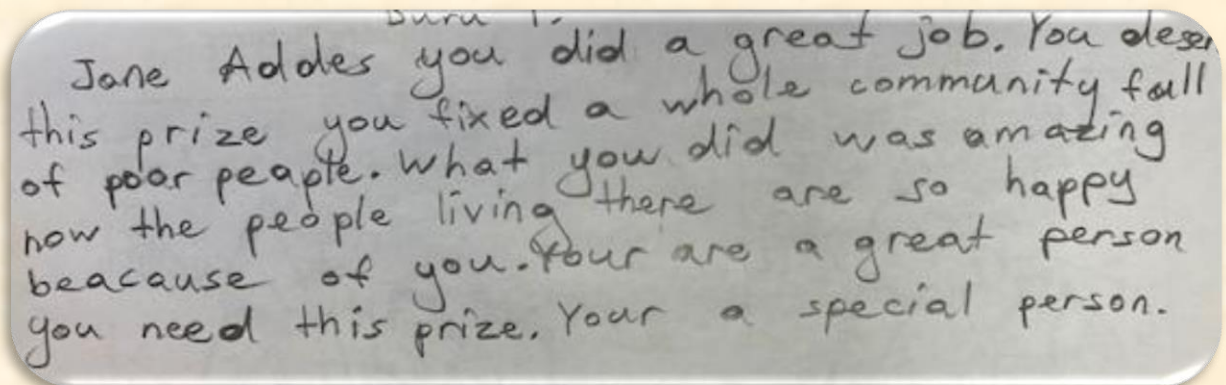 Jane Addes you did a great job. You deser
this prize you fixed a whole community full
of poor peaple. What you did was amazing
now the people living there are so happy
beacause of you. Your are a great person
you need this prize. Your a special person.